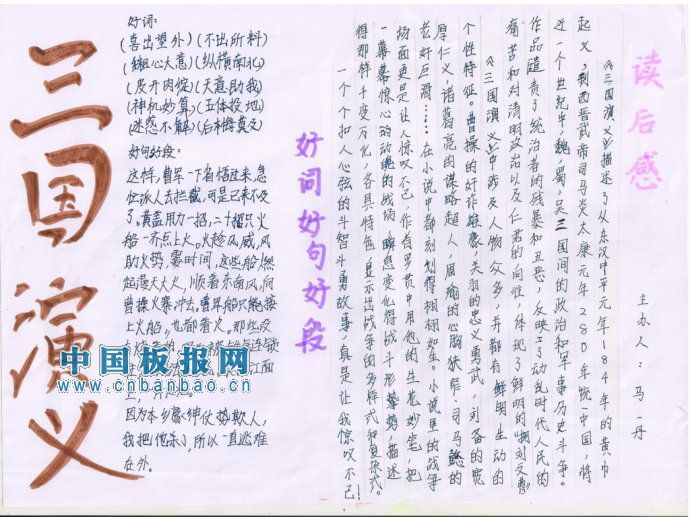 三国演义
好词:
(喜出望外)(不出所料)
(粗心大意)(纵横南北)
(皮开肉绽)(天意助我)
(神机妙算)(五体投地)
(迷惑不解)(后悔莫及)
好句好段:
这时,曹军一下省悟过来,急
忙派人去拦截,可是已来不及
了,黄盖用力一招,二十艘只火
船一齐点上火。火趁风威,风
助火势,霎时间,这些船燃
起漫天大火,顺着东南风,向
曹操火寨冲去。曹军船只能接
上火船,也都着火。
中国板报网
www.cnbanbao.cn
江面
因为本乡豪绅仗势欺人,
我把他杀了,所以一直逃难
在外。
好词好句好段
读后感
主办人:马一丹
《三国演义》描述了从东汉中平元年184年的黄巾
起义,到西晋武帝司马炎太康元年280年统一中国,将
近一个世纪中,魏、蜀、吴三国间的政治和军事历史斗争。
作品谴责了统治者的残暴和丑恶,反映了动乱时代人民的
痛苦和对清明政治以及仁君的向往,体现了鲜明的
《三国演义》中涉及人物众多,并都有鲜明生动的
个性特征。曹操的奸诈雄豪,关羽的忠义勇武,刘备的宽
厚仁义,诸葛亮的谋略超人,周瑜的心胸狭窄,司马懿的
老奸巨猾……在小说中都刻划得栩栩如生。小说里的战争
场面更是让人惊叹不已,作者罗贯中用他的生花妙笔,把
一幕幕惊心动魄的战场,瞬息变化得战斗形势,描述
得那样千变万化,各具特色,显示出战争的多样式和复杂式。
一个个扣人心弦的斗智斗勇故事,真是让我惊叹不已!